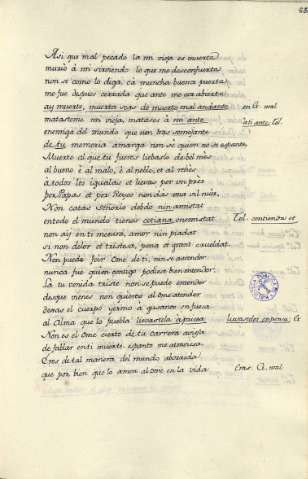 Asi que mal pecado la mi vieja es muerta
murió à mi sirviendo lo que me desconfuerta
non sé como lo diga, cà muncha buena puerta
me fue despues cerrada que ante me era abierta
ay muerte, muerta seas de muerte mal andante
mataste mi vieja, matases à mi ante
enemiga del mundo que non has semejante
de tu memoria amarga non sé quien no se espante.
Muerte al que tu fieres liebaslo de
al bueno è al malo, è al noble, et al
à todos les igualas et lievas por un
por Papas et por Reyes non das una vil nues.
Non catas Señorío debdo nin amistat
con todo el mundo tienes cotiana enemistat
non ay en ti mesura, amor nin piadat
si non dolor et tristesa, pena et grant crueldat.
Non puede foir Ome de ti, nin se asconder
nunca fue quien contigo podiese bien
La tu venida triste non se puede entender
desque vienes non quieres al Ome atender
denas el cuerpo yermo à gusanos en fuesa
al Alma que lo puebla lievastela apriesa
Non es el Ome cierto de tu carrera aviesa
de fablar en ti muerte espanto me atraviesa.
Eres de tal manera del mundo aborrida
que por bien que lo amen al Ome en la vida
en tl. mal
à mi ante. Tol.
Tol. contienda et
lievandolo
Eras. à. mal